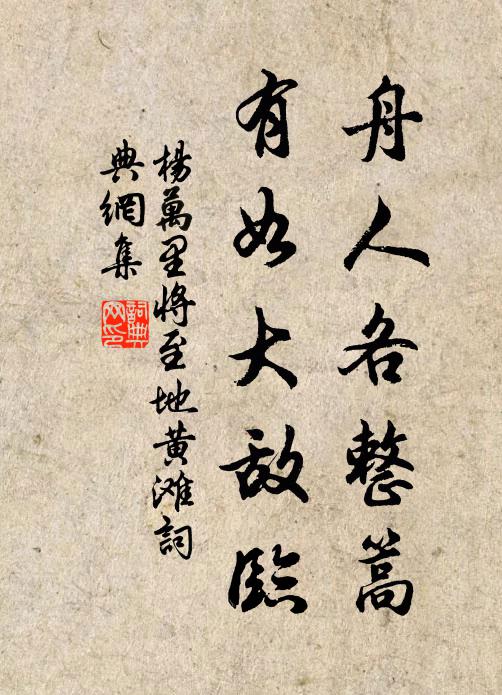 舟人各整篙
有如大敌臨
楊萬里將至地黄滩詞
典網集
詞典
网印